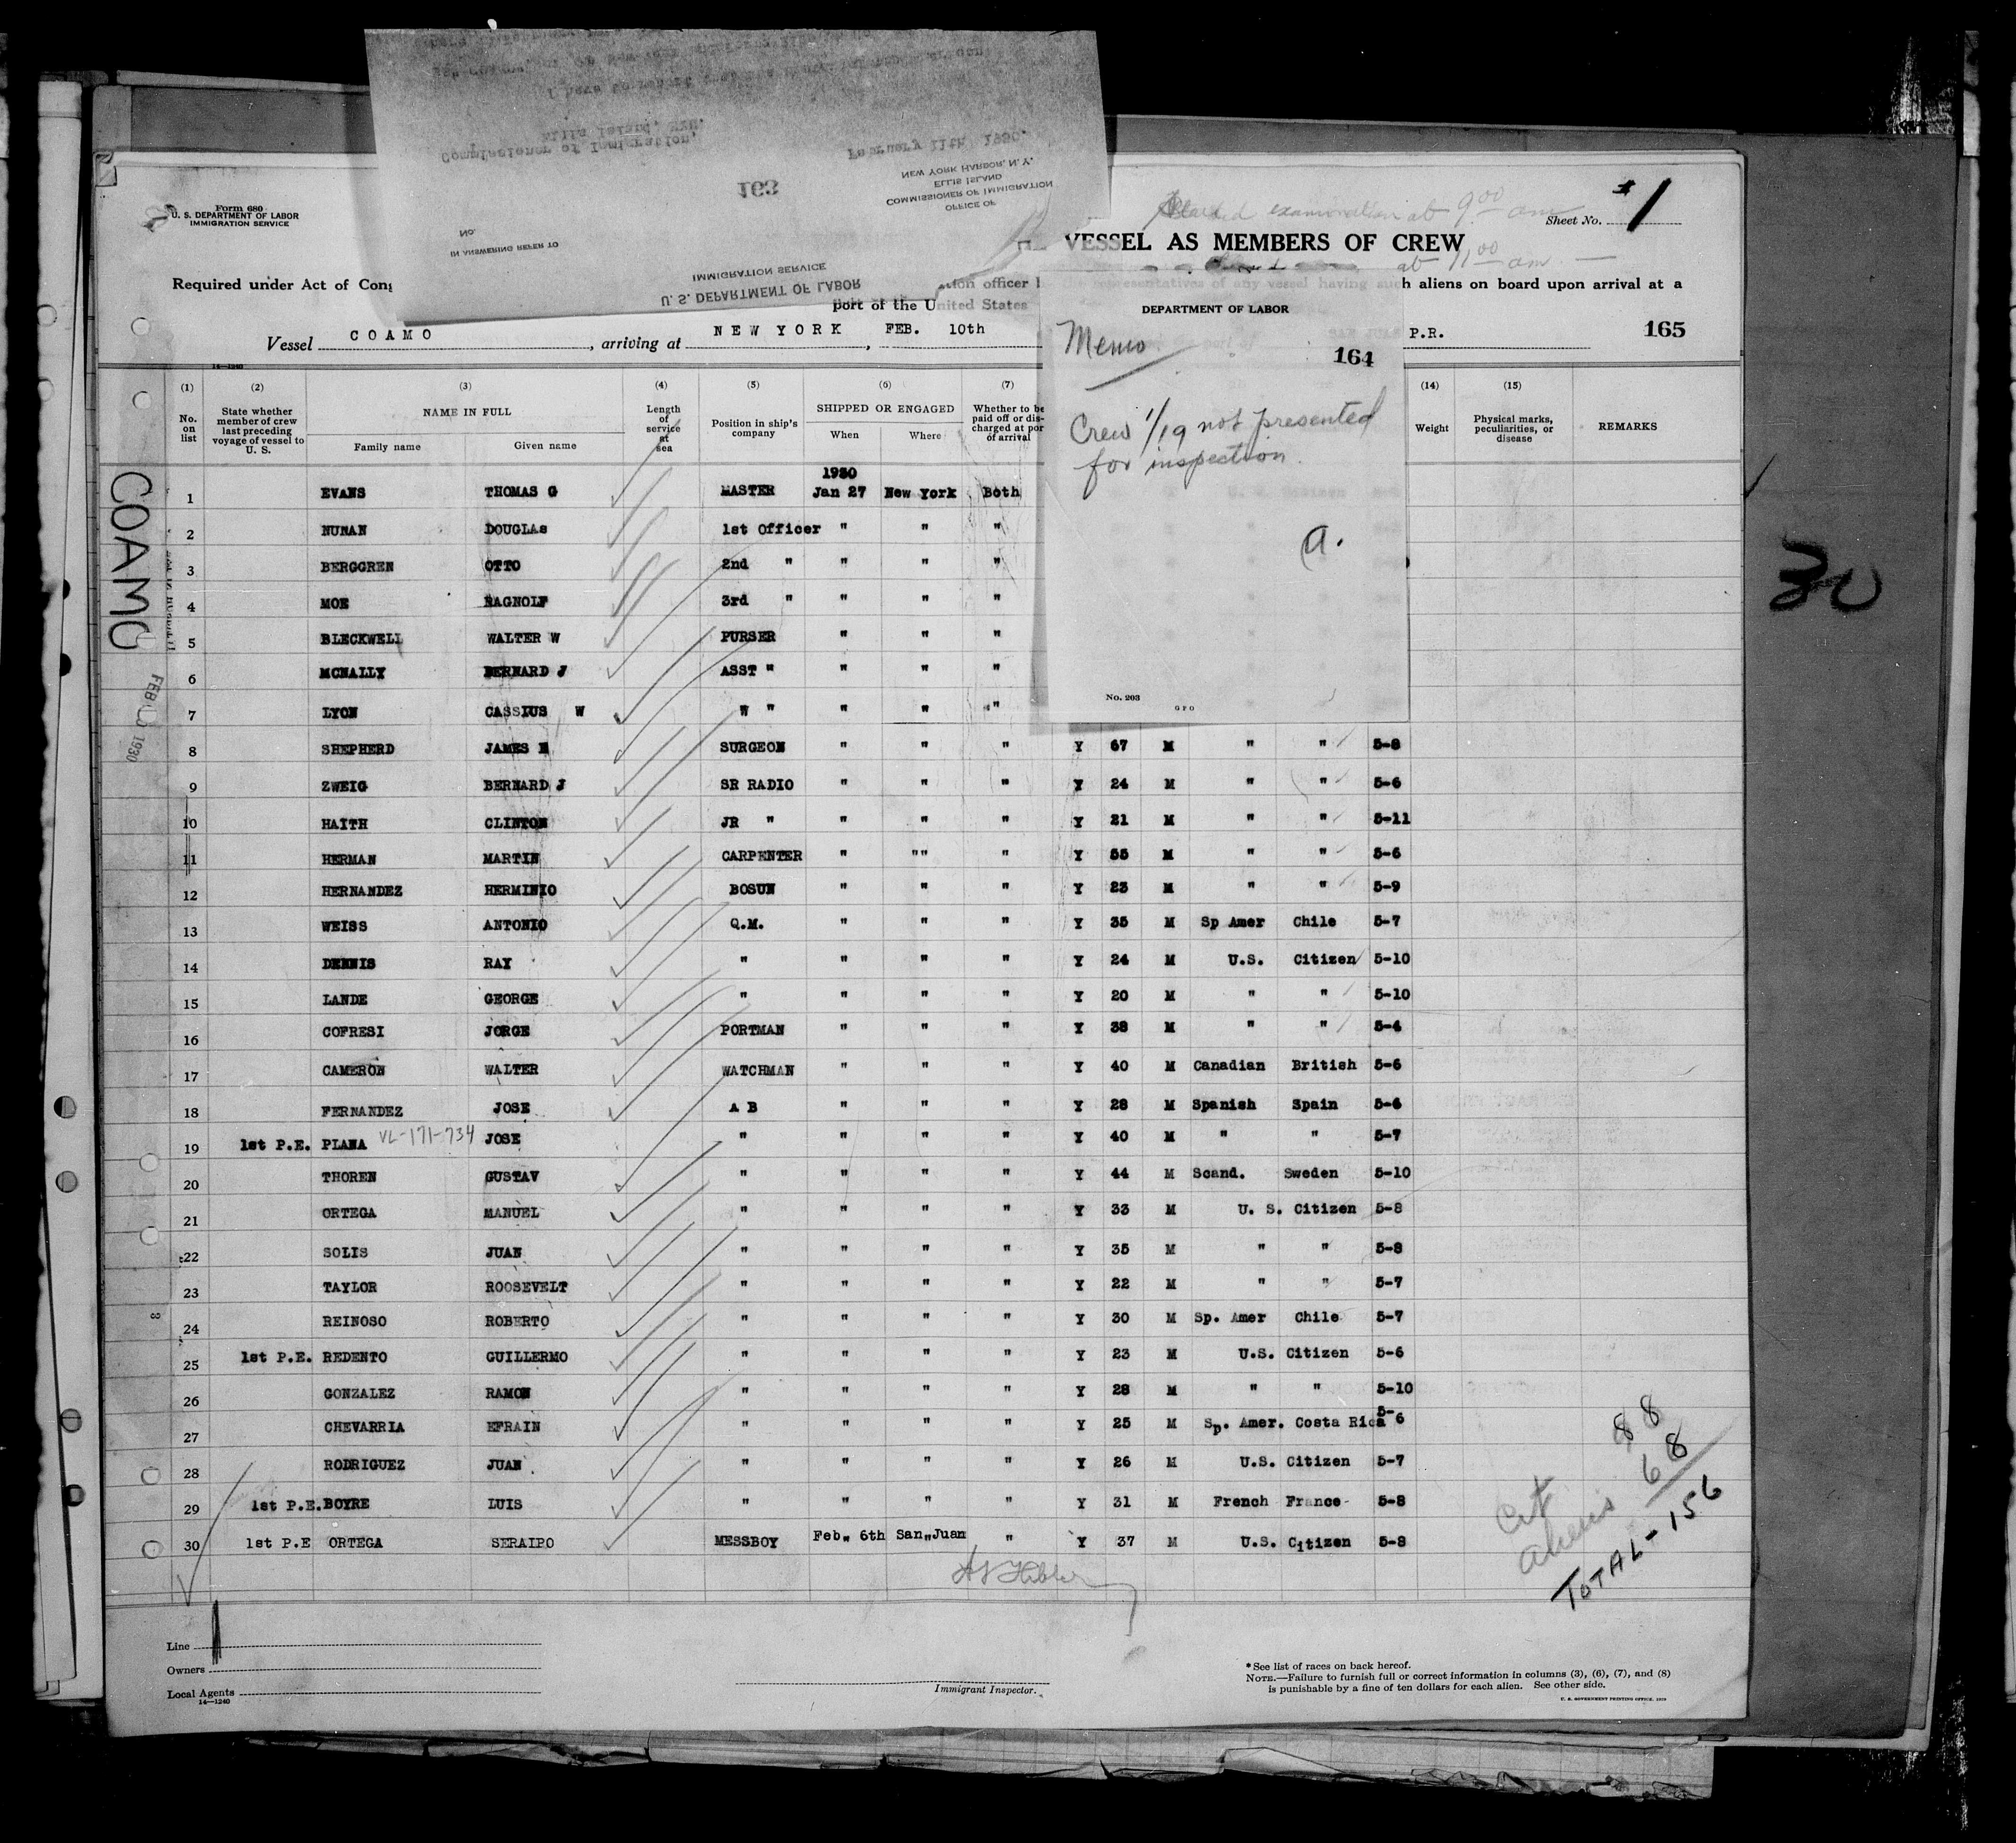 Form 680
U. S. DEPARTMENT OF LABOR
IMMIGRATION SERVICE
I have to
Ellis Island, N.Y.
Commissioner of Immigration,
February 11th, 1930.
163
NEW YORK HARBOR, N. Y.
ELLIS ISLAND
COMMISSIONER OF IMMIGRATION
OFFICE OF
No.
IN ANSWERING REFER TO
IMMIGRATION SERVICE
U. S. DEPARTMENT OF LABOR
Started examination at 9 00 am
Sheet No. 1
VESSEL AS MEMBERS OF CREW
at 11 00 am
Required under Act of Cong
officer
representatives of any vessel having such aliens on board upon arrival at a
port of the United States
Vessel COAMO, arriving at NEW YORK, FEB. 10th
P.R.
165
DEPARTMENT OF LABOR
Memo
164
Crew 1/19 not presented
for inspection.
a.
No. 203
GPO
14—1240
(1) (2) (3) (4) (5) (6) (7) (14) (15)
No. on list
State whether member of crew last preceding voyage of vessel to U. S.
NAME IN FULL
Family name Given name
Length of service at sea
Position in ship's company
SHIPPED OR ENGAGED
When Where
Whether to be paid off or discharged at port of arrival
Weight
Physical marks, peculiarities, or disease
REMARKS
1930
1 EVANS THOMAS G MASTER Jan 27 New York Both
2 NUNAN DOUGLAS 1st Officer " " "
3 BERGGREN OTTO 2nd " " " "
4 MOE RAGNOLF 3rd " " " "
5 BLECKWELL WALTER W PURSER " " "
6 MCNALLY BERNARD J ASST " " " "
7 LYON CASSIUS W " " " " "
8 SHEPHERD JAMES SURGEON " " " Y 67 M " " 5-8
9 ZWEIG BERNARD J SR RADIO " " " Y 24 M " " 5-6
10 HAITH CLINTON JR " " " " Y 21 M " " 5-11
11 HERMAN MARTIN CARPENTER " "" " Y 55 M " " 5-6
12 HERNANDEZ HERMINIO BOSUN " " " Y 23 M " " 5-9
13 WEISS ANTONIO Q.M. " " " Y 35 M Sp Amer Chile 5-7
14 DENNIS RAY " " " " Y 24 M U.S. Citizen 5-10
15 LANDE GEORGE " " " " Y 20 M " " 5-10
16 COFRESI JORGE PORTMAN " " " Y 38 M " " 5-4
17 CAMERON WALTER WATCHMAN " " " Y 40 M Canadian British 5-6
18 FERNANDEZ JOSE A B " " " Y 28 M Spanish Spain 5-6
19 1st P.E. PLANA VL-171-734 JOSE " " " " Y 40 M " " 5-7
20 THOREN GUSTAV " " " " Y 44 M Scand. Sweden 5-10
21 ORTEGA MANUEL " " " " Y 33 M U. S. Citizen 5-8
22 SOLIS JUAN " " " " Y 35 M " " 5-8
23 TAYLOR ROOSEVELT " " " " Y 22 M " " 5-7
24 REINOSO ROBERTO " " " " Y 30 M Sp. Amer Chile 5-7
25 1st P.E. REDENTO GUILLERMO " " " " Y 23 M U.S. Citizen 5-6
26 GONZALEZ RAMON " " " " Y 28 M " " 5-10
27 CHEVARRIA EFRAIN " " " " Y 25 M Sp. Amer. Costa Rica 5-6
28 RODRIGUEZ JUAN " " " " Y 26 M U.S. Citizen 5-7
29 1st P.E. BOYRE LUIS " " " " Y 31 M French France 5-8
30 1st P.E ORTEGA SERAIPO MESSBOY Feb. 6th San Juan " Y 37 M U.S. Citizen 5-8
COAMO
FEB 10 1930
30
Cit 88
aliens 68
TOTAL - 156
Line
Owners
Local Agents
14—1240
Immigrant Inspector.
* See list of races on back hereof.
NOTE.—Failure to furnish full or correct information in columns (3), (6), (7), and (8)
is punishable by a fine of ten dollars for each alien. See other side.
U. S. GOVERNMENT PRINTING OFFICE. 1929